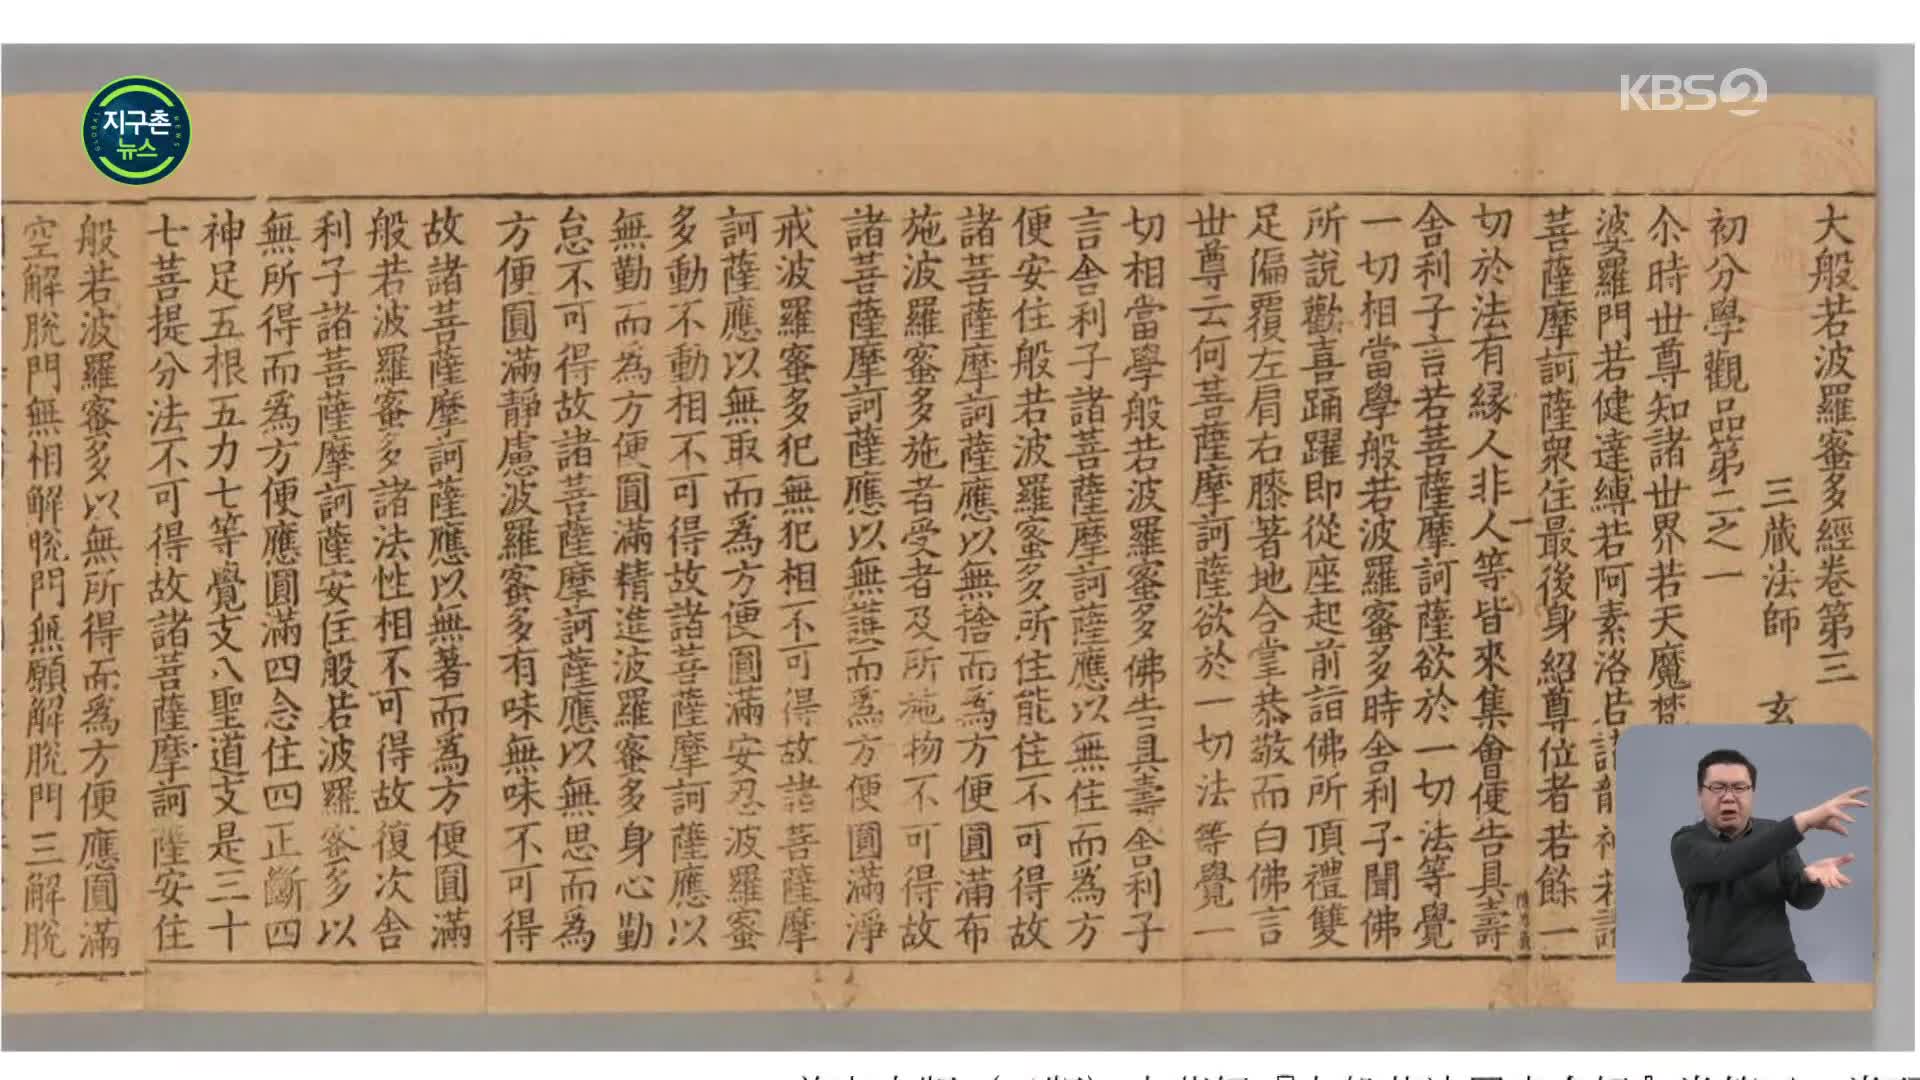 지구촌
뉴스
GLOBAL NEWS
KBS2
大般若波羅蜜多經卷第三
三藏法師 玄
初分學觀品第二之一
尒時世尊知諸世界若天魔梵
婆羅門若健達縛若阿素洛若諸龍神若諸
菩薩摩訶薩衆住最後身紹尊位者若餘一
切於法有緣人非人等皆來集會便告具壽
舍利子言若菩薩摩訶薩欲於一切法等覺
一切相當學般若波羅蜜多時舍利子聞佛
所說歡喜踊躍即從座起前詣佛所頂禮雙
足偏覆左肩右膝著地合掌恭敬而白佛言
世尊云何菩薩摩訶薩欲於一切法等覺一
切相當學般若波羅蜜多佛告具壽舍利子
言舍利子諸菩薩摩訶薩應以無住而爲方
便安住般若波羅蜜多所住能住不可得故
諸菩薩摩訶薩應以無捨而爲方便圓滿布
施波羅蜜多施者受者及所施物不可得故
諸菩薩摩訶薩應以無護而爲方便圓滿淨
戒波羅蜜多犯無犯相不可得故諸菩薩摩
訶薩應以無取而爲方便圓滿安忍波羅蜜
多動不動相不可得故諸菩薩摩訶薩應以
無勤而爲方便圓滿精進波羅蜜多身心勤
怠不可得故諸菩薩摩訶薩應以無思而爲
方便圓滿靜慮波羅蜜多有味無味不可得
故諸菩薩摩訶薩應以無著而爲方便圓滿
般若波羅蜜多諸法性相不可得故復次舍
利子諸菩薩摩訶薩安住般若波羅蜜多以
無所得而爲方便應圓滿四念住四正斷四
神足五根五力七等覺支八聖道支是三十
七菩提分法不可得故諸菩薩摩訶薩安住
般若波羅蜜多以無所得而爲方便應圓滿
空解脫門無相解脫門無願解脫門三解脫